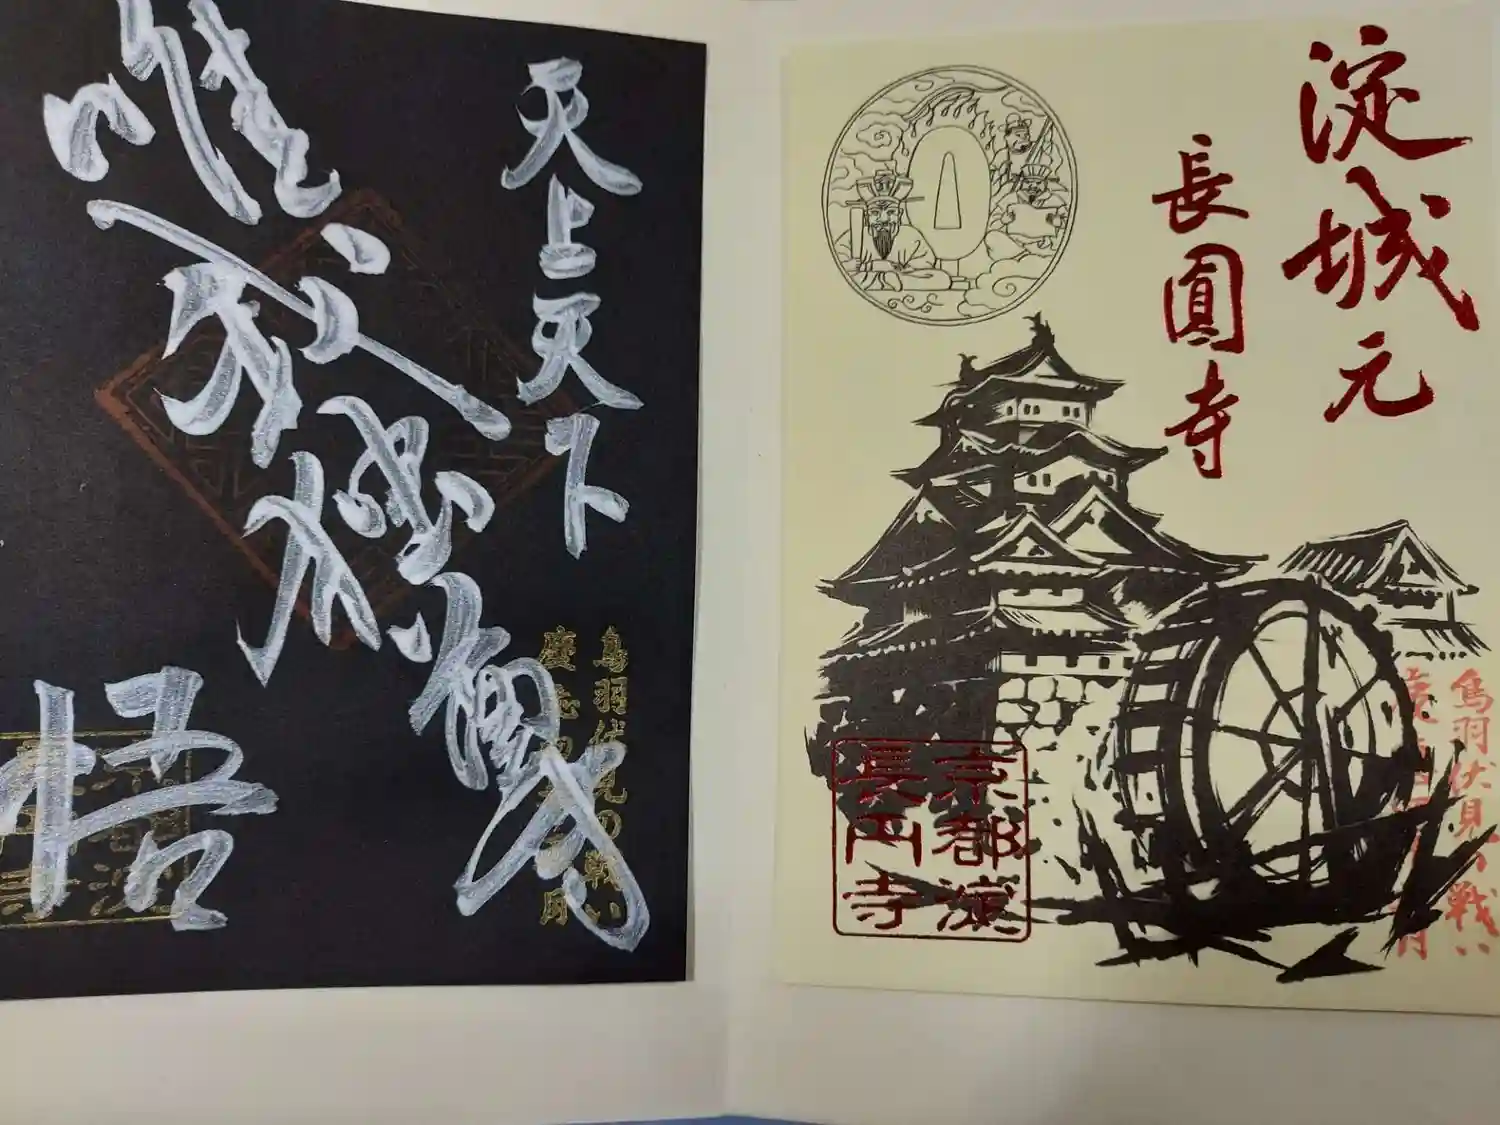 淀城元
長圓寺
鳥羽伏見の戦い
京都淀
長円寺
天上天下
唯我独尊
悟
鳥羽伏見の戦い